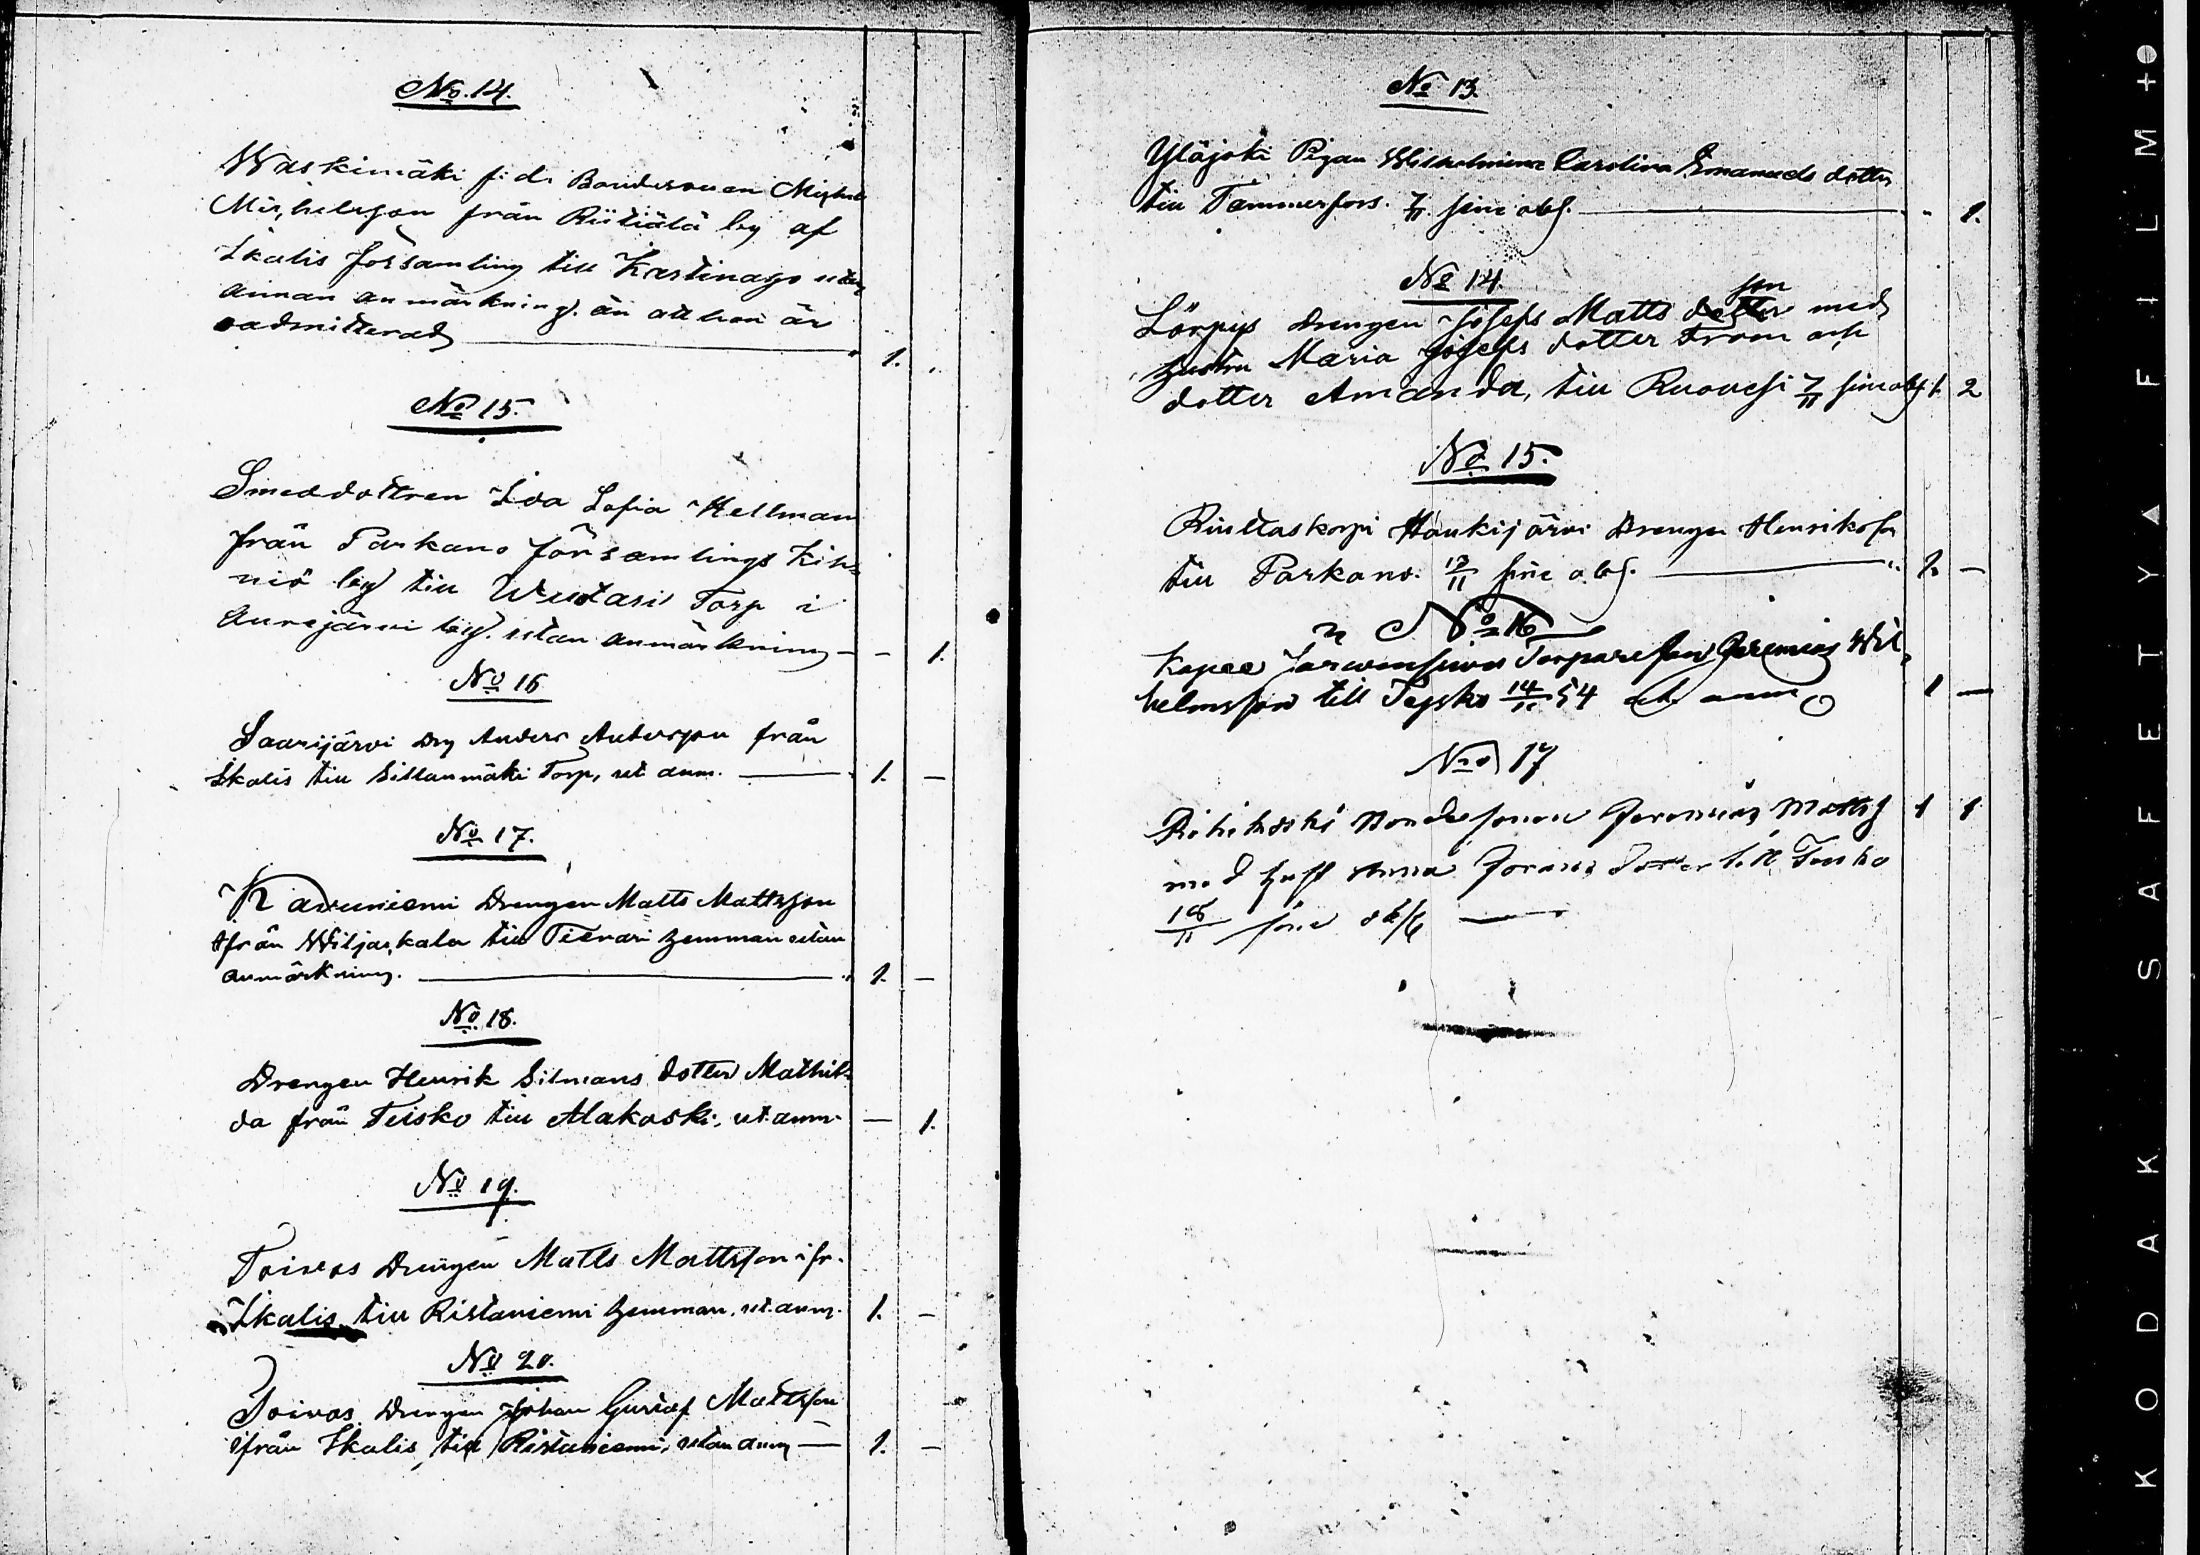 No. 14.
Waskimäki f: d: Bondesonen Michel
Michelsson från Riitiälä by af
Ikalis församling till Kartinago utan
annan anmärkning. än att han är
admitterad 1.
No 15.
Smeddottren Ida Sofia Hellman
från Parkano församlings Kih=
niö by till Torp i
Aurejärvi by. utan anmärkning — — 1.
No 16
Saarijärvi Drg Anders Andersson från
Ikalis till Sillanmäki Torp, ut anm. — 1. —
No 17.
Drengen Matts Mattsson
ifrån Wiljakkala till hemman utan
anmärkning. — 1. —
No 18.
Drengen Henrik Silmans dotter Mathil=
da från Teisko till Alakoski, ut. anm. — 1.
No 19.
Toivos Drengen Matts Mattsson ifr.
Ikalis till Ristaniemi hemman. ut. anm. 1. —
No 20.
Toivos Drengen Johan Gustaf Mattsson
ifrån Ikalis, till Ristaniemi, utan anm — 1. —
No 13.
Yläjoki Pigan Wilhelmina Carolina Emanuels dotter
till Tammerfors. 7/11 sine obs. — 1.
No 14.
son
Lörpys Drengen Josefs Matts dotter med
hustru Maria Josefs dotter och
dotter Amanda, till Ruovesi 7/11 sine obs. 1. 2
No 15.
Haukijärvi Drengen Henriksson
till Parkano. 12/11 sine obs. — 1. —
No 16
Torparesson Jeremias Wil=
helmsson till Teysko 14/11 54 ut anm 1 —
No 17
Bondesonen Jeremias Matts 1 1
med hust Anna dotter till Teisko
18/11 sine obs —
KODAK SAFETY FILM